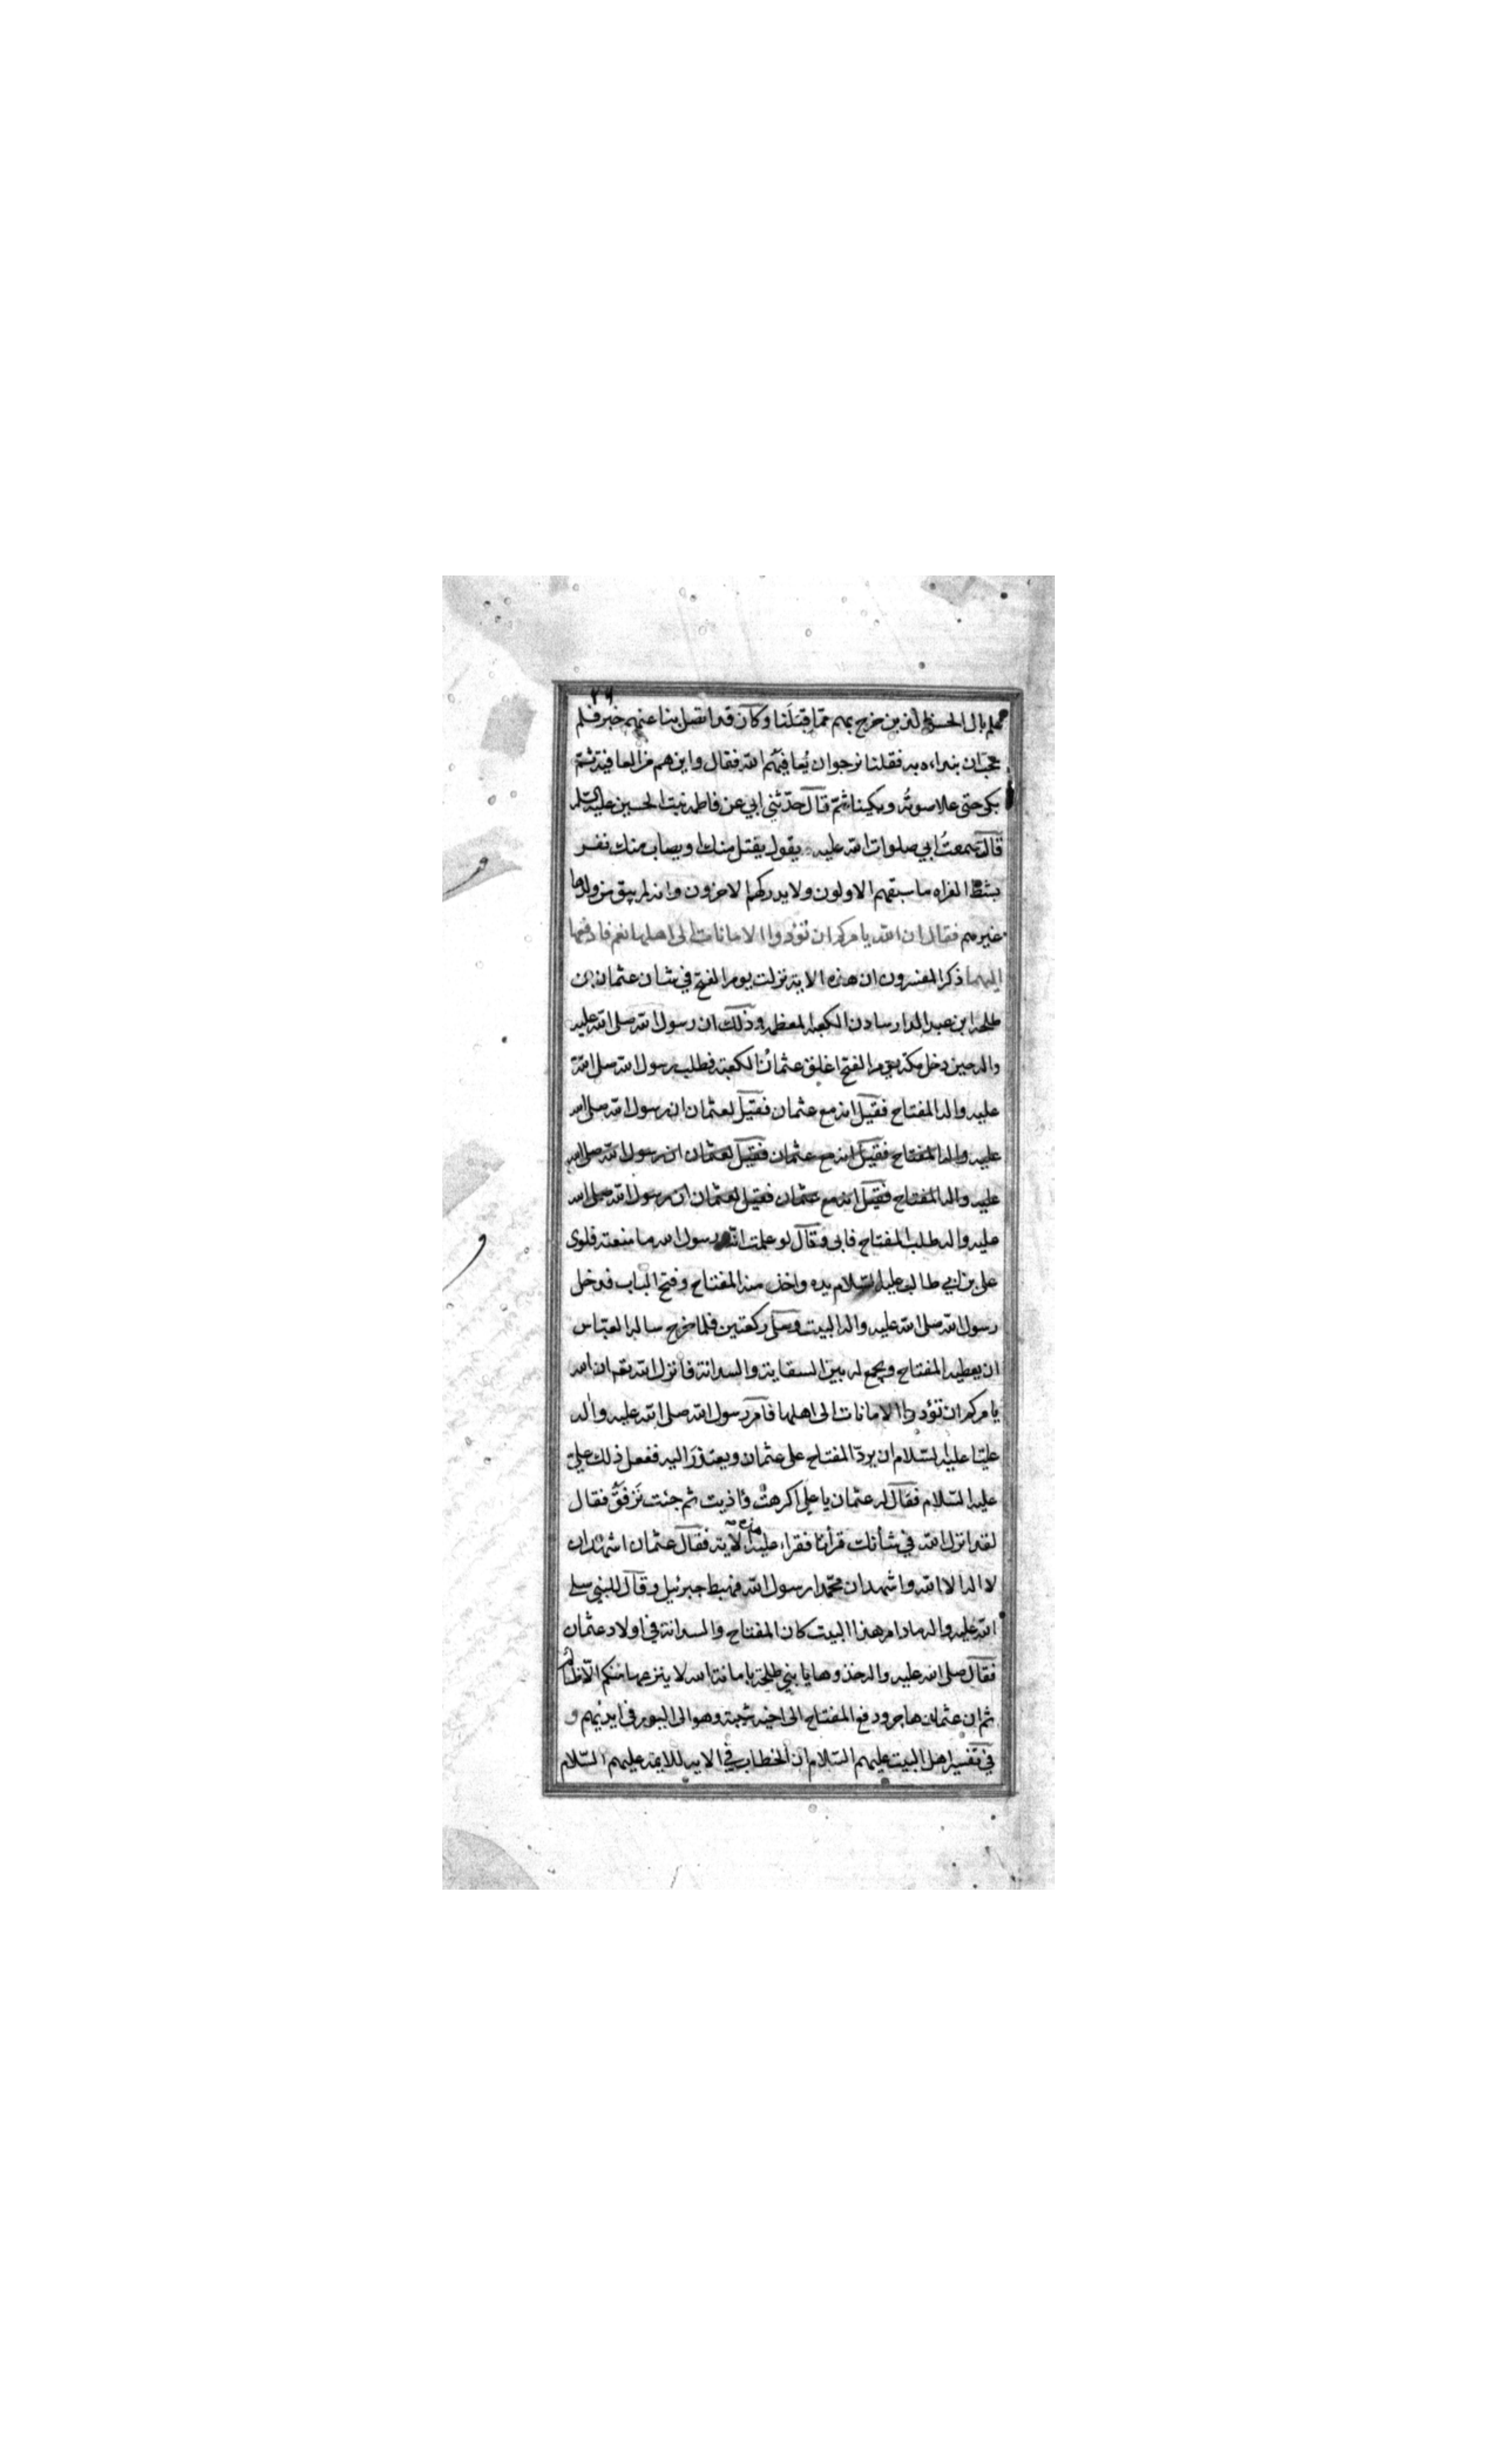 ٢٦
علم بال الحسن الذين خرج بهم مما قبلنا وكان قد اتصل بنا عنهم خبر فلم
نحب ان نبداه به فقلنا نرجوان يُعافيهُم الله فقال واين هم من العافية ثم
بكى حتى علا صوتُه وبكينا ثمّ قال حدّثني ابي عن فاطمه بنت الحسين عليه السلم
قال سمعتُ ابي صلوات الله عليه يقول يقتل منك او يصاب منك نفر
بشط الفراه ما سبقهم الاولون ولا يدركهم الاخرون وانه لم يبق من ولدها
غيرهم فقال ان الله يامركم ان تؤدوا الامانات الى اهلها نعم فادفعها
اليهما ذكر المفسرون ان هذه الاية نزلت يوم الفتح في شان عثمان بن
طلحة ابن عبد الدار سادن الكعبة المعظمه وذلك ان رسول الله صلى الله عليه
واله حين دخل مكة يوم الفتح اغلق عثمانُ الكعبة فطلب رسول الله صلى الله
عليه واله المفتاح فقيل انه مع عثمان فقيل لعثمان ان رسول الله صلى الله
عليه واله المفتاح فقيل انه مع عثمان فقيل لعثمان ان رسول الله صلى الله
عليه واله المفتاح فقيل انه مع عثمان فقيل لعثمان ان رسول الله صلى الله
عليه واله طلب المفتاح فابى وقال لو علمت انه رسول الله ما منعته فلوى
على بن ابي طالب عليه السّلام يده واخذ منه المفتاح وفتح الباب فدخل
رسول الله صلى الله عليه واله البيت وصلى ركعتين فلما خرج ساله العبّاس
ان يعطيه المفتاح ويجمع له بين السقاية والسدانة فانزل الله تعه ان الله
يامركم ان تؤدوا الامانات الى اهلها فامر رسول الله صلى الله عليه واله
عليّا عليه السّلام ان يردّ المفتاح على عثمان ويعتذر اليه ففعل ذلك علي
عليه السّلام فقال له عثمان يا علي اكرهت واذيت ثم جئت تَرفَقُ فقال
لقد انزل الله في شأنك قرأنا فقراء عليه الاية فقال عثمان اشهد ان
لا اله الا الله واشهد ان محمّدا رسول الله فهبط جبرئيل وقال للنبي صلى
الله عليه واله مادام هذا البيت كان المفتاح والسدانة في اولاد عثمان
فقال صلى الله عليه واله خذوها يا بني طلحة بامانة الله لا ينزعها منكم الّا ظالم
ثم ان عثمان هاجر ودفع المفتاح الى اخيه شيبة وهو الى اليوم في ايديهم و
في تفسير اهل البيت عليهم السّلام ان الخطاب في الاية للايمة عليهم السّلام